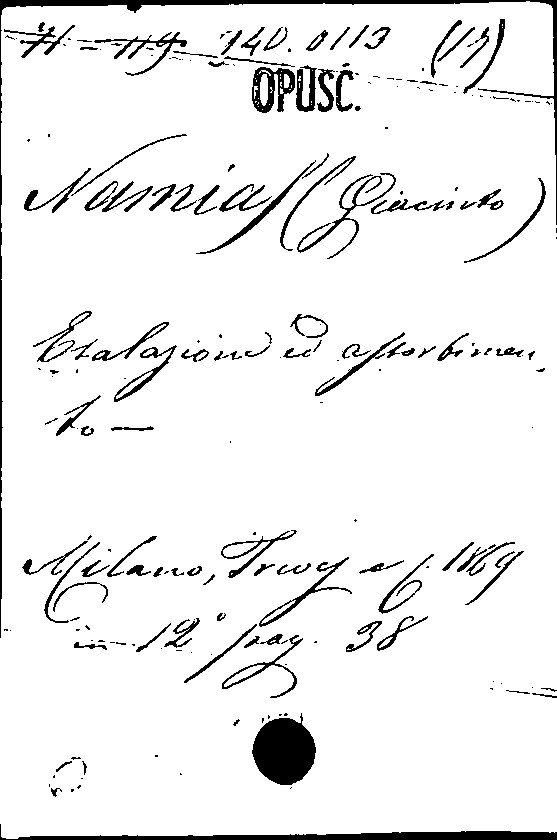 71-119 140.0113 (17)
OPUSC.
Namias (Giacinto)
Esalazione ed assorbimen-
to —
Milano, Treves e C. 1869
in 12° pag. 38